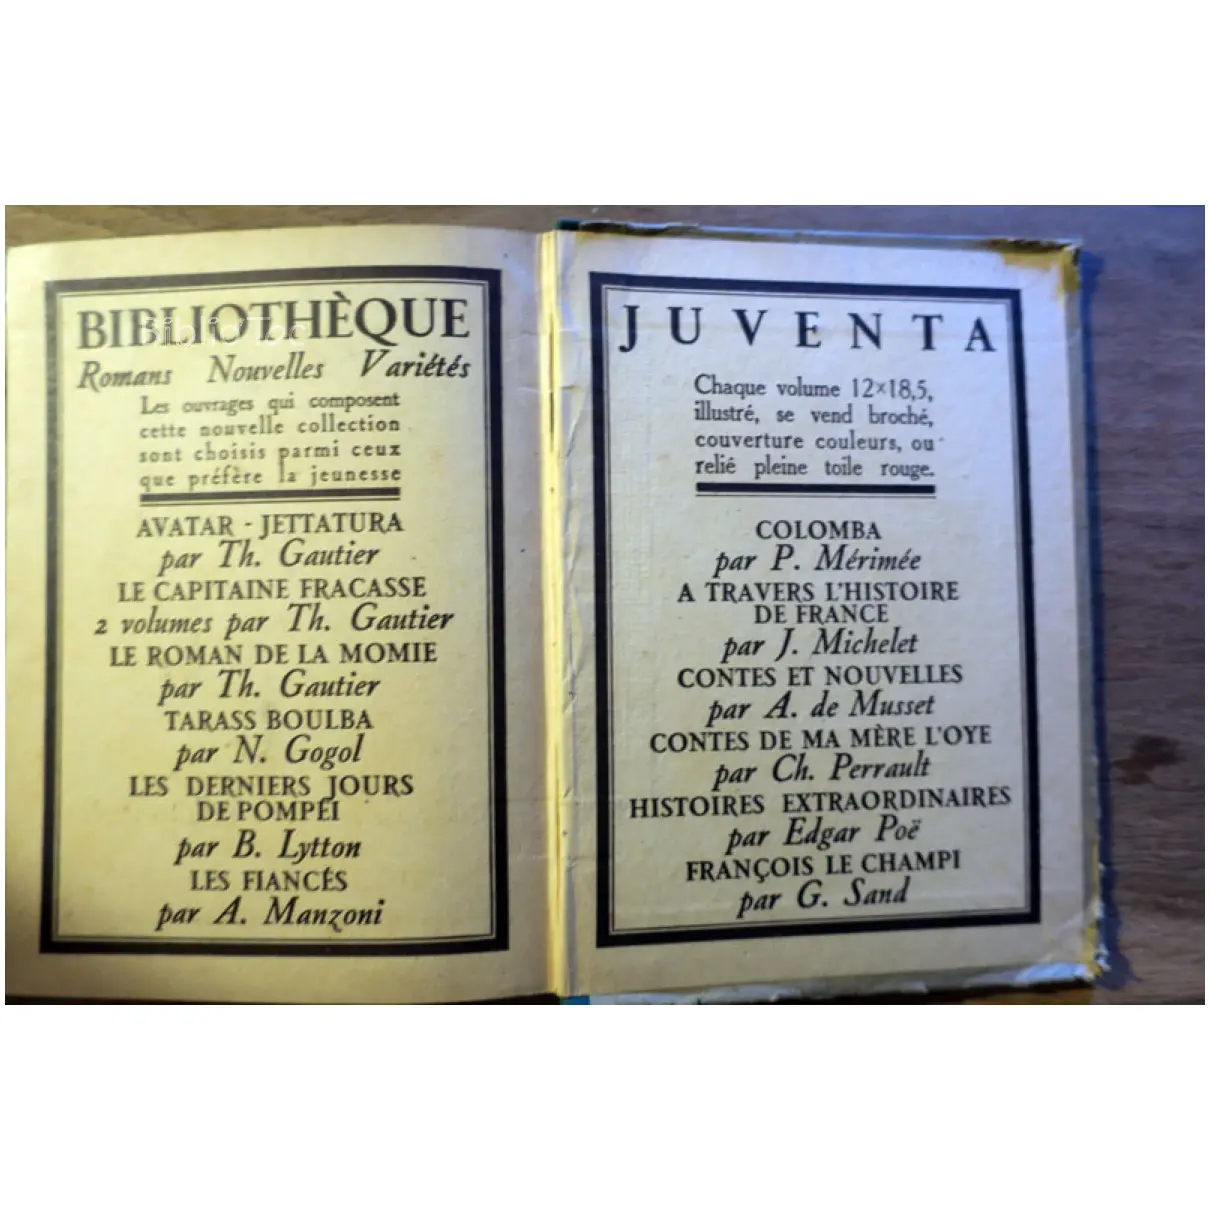 BIBLIOTHÈQUE
Romans Nouvelles Variétés
Les ouvrages qui composent
cette nouvelle collection
sont choisis parmi ceux
que préfère la jeunesse
AVATAR - JETTATURA
par Th. Gautier
LE CAPITAINE FRACASSE
2 volumes par Th. Gautier
LE ROMAN DE LA MOMIE
par Th. Gautier
TARASS BOULBA
par N. Gogol
LES DERNIERS JOURS
DE POMPÉI
par B. Lytton
LES FIANCÉS
par A. Manzoni
JUVENTA
Chaque volume 12×18,5,
illustré, se vend broché,
couverture couleurs, ou
relié pleine toile rouge.
COLOMBA
par P. Mérimée
A TRAVERS L'HISTOIRE
DE FRANCE
par J. Michelet
CONTES ET NOUVELLES
par A. de Musset
CONTES DE MA MÈRE L'OYE
par Ch. Perrault
HISTOIRES EXTRAORDINAIRES
par Edgar Poë
FRANÇOIS LE CHAMPI
par G. Sand